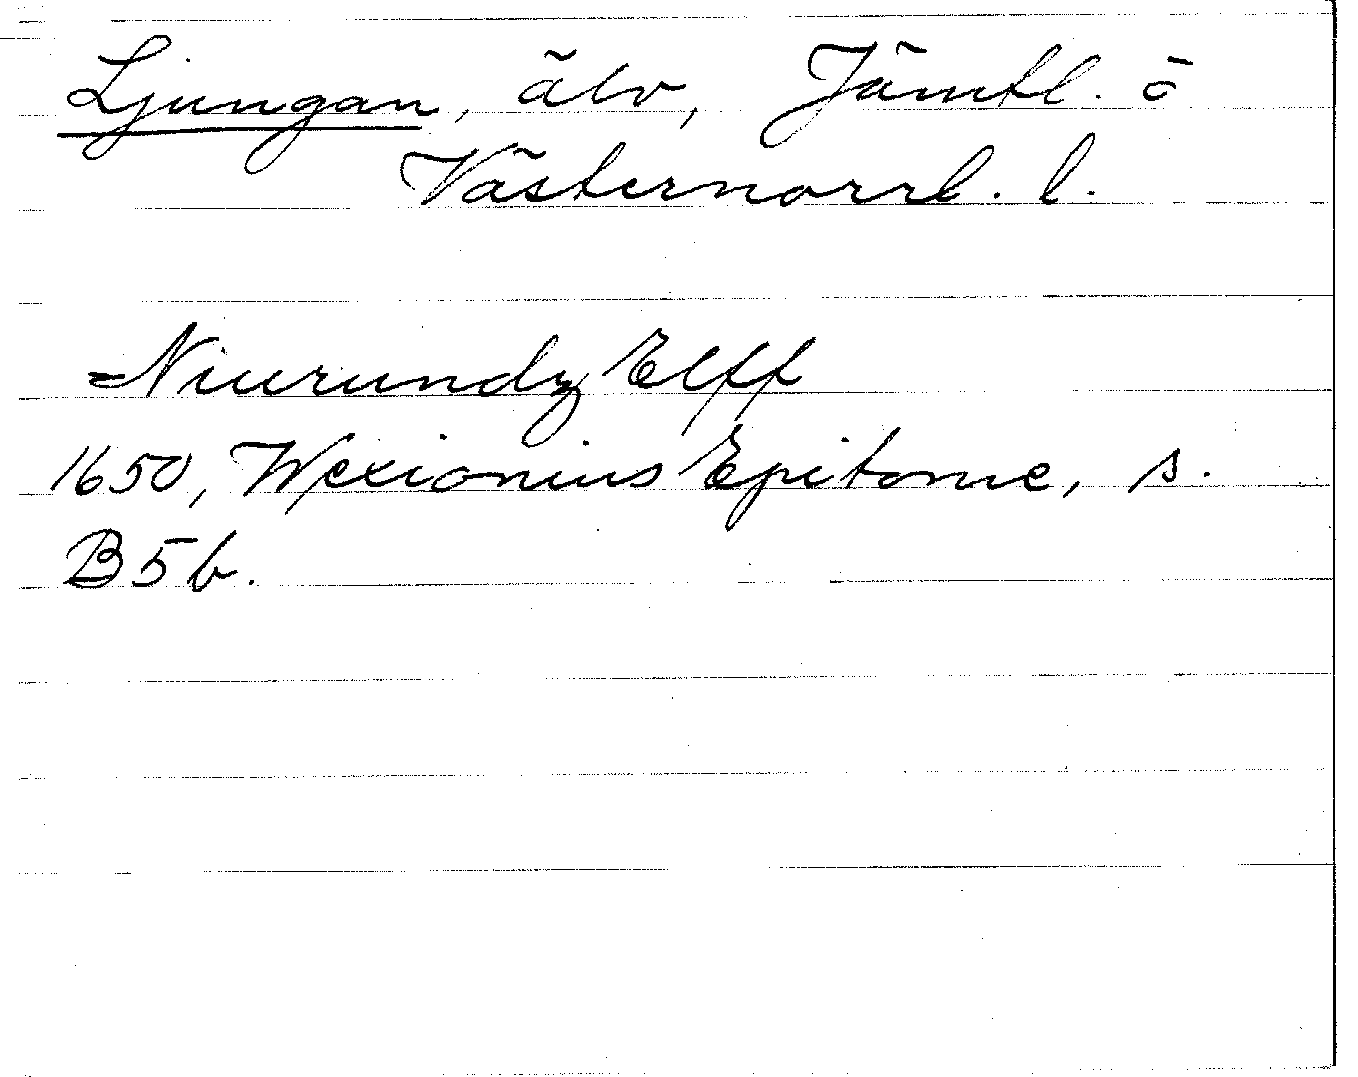 Ljungan, älv, Jämtl. o
Västernorrl. l.
Niurundz Elff
1650, Wexionius Epitome, s.
B5b.